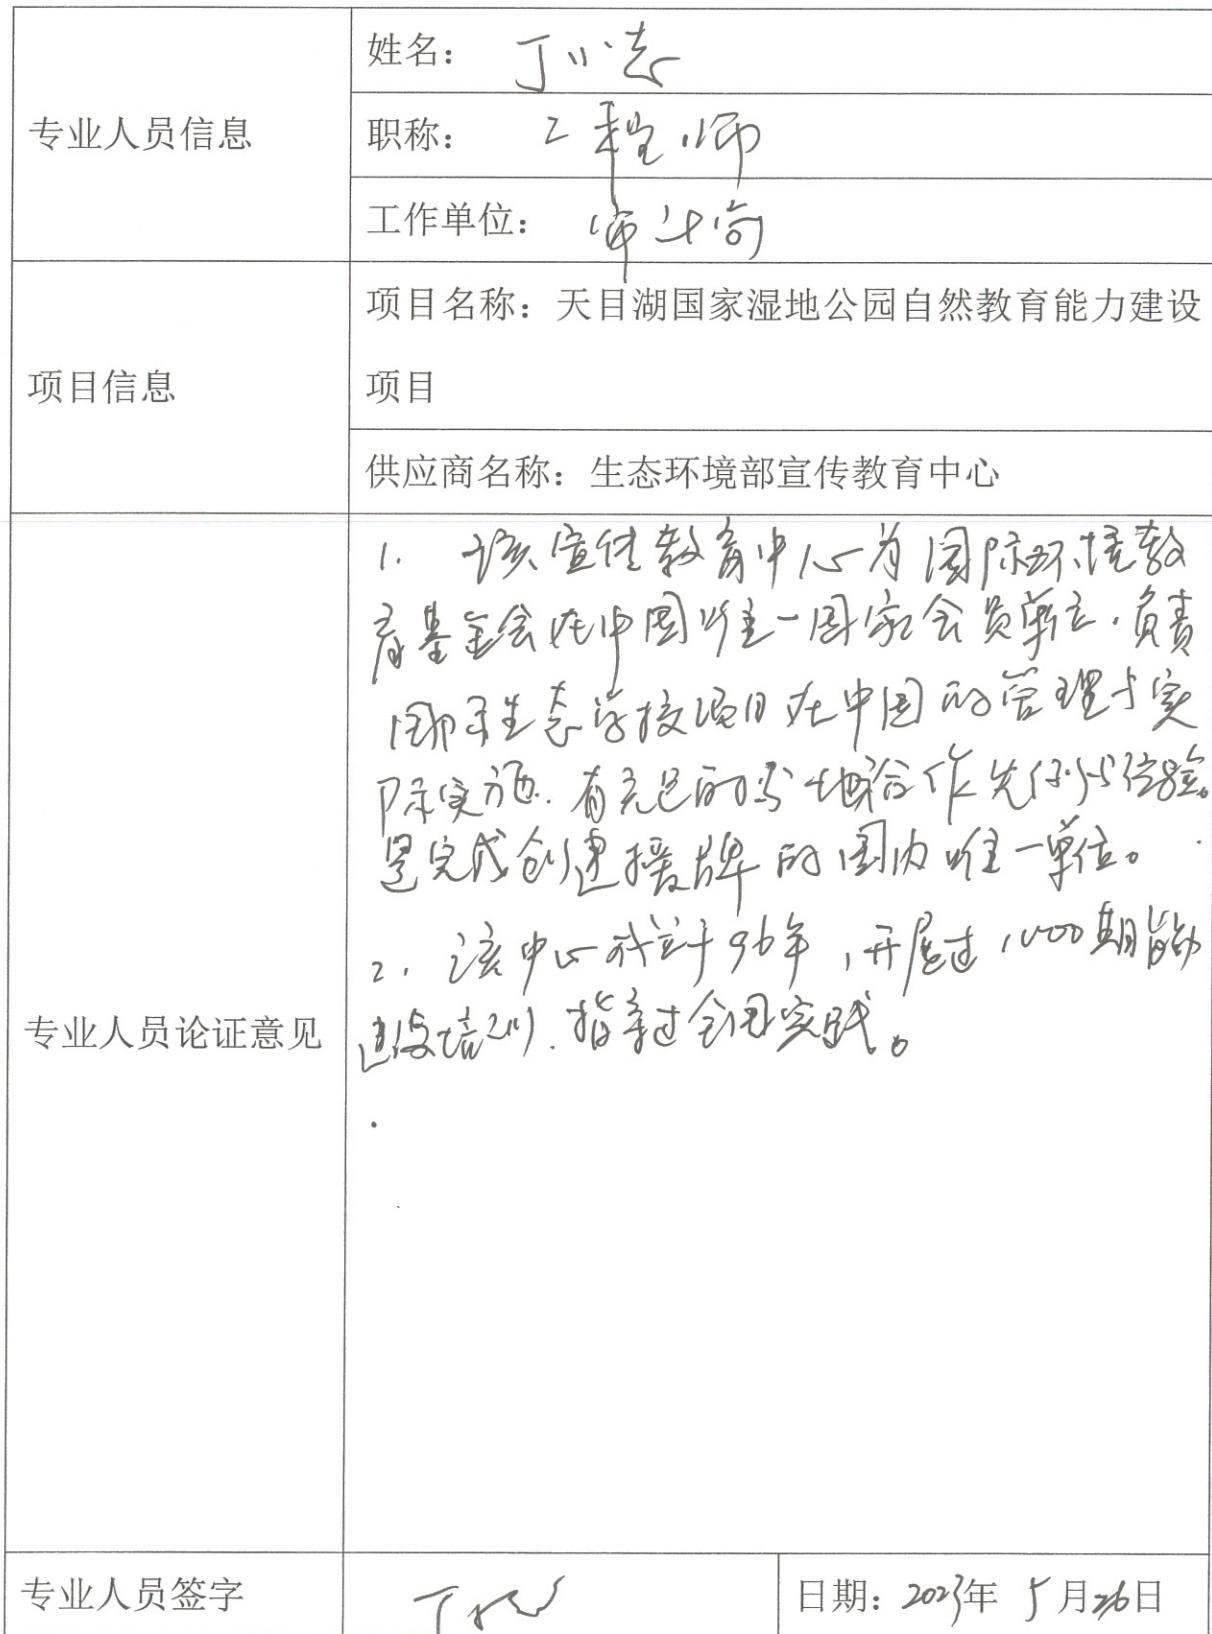 专业人员信息
姓名：丁小志
职称：工程师
工作单位：
项目信息
项目名称：天目湖国家湿地公园自然教育能力建设
项目
供应商名称：生态环境部宣传教育中心
专业人员论证意见
1. 该宣传教育中心为国际环境教
育基金会在中国唯一国家会员单位，负责
国际生态学校项目在中国的管理与实
际实施。有充足的与地合作先例与经验。
是完成创建授牌的国内唯一单位。
2. 该中心成立于96年，开展过1000期能力
建设培训，指导过全国实践。
专业人员签字
日期：2023年5月26日